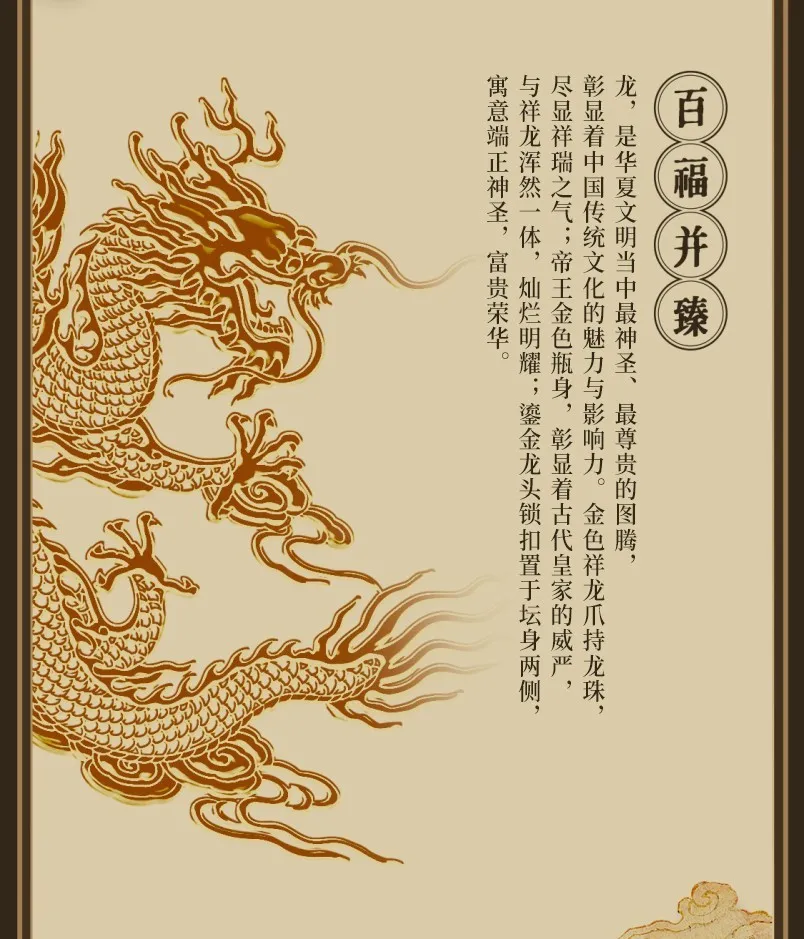 百福并臻
龙，是华夏文明当中最神圣、最尊贵的图腾，
彰显着中国传统文化的魅力与影响力。金色祥龙爪持龙珠，
尽显祥瑞之气；帝王金色瓶身，彰显着古代皇家的威严，
与祥龙浑然一体，灿烂明耀；鎏金龙头锁扣置于坛身两侧，
寓意端正神圣，富贵荣华。